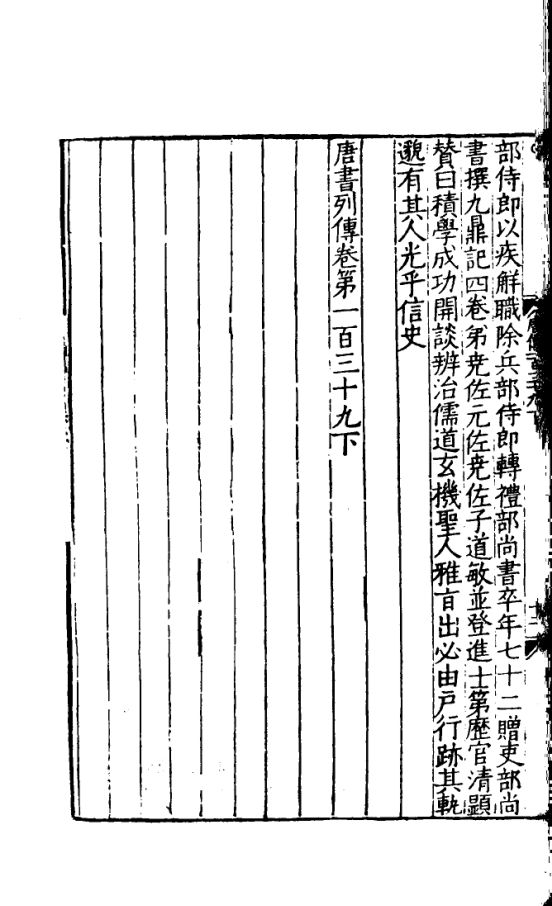 部侍郎以疾解職除兵部侍郎轉禮部尚書卒年七十二贈吏部尚
書撰九鼎記四卷弟尭佐元佐尭佐子道敏並登進士第歷官清顯
賛曰積學成功開談辨治儒道玄機聖人雅㫖出必由戶行跡其軌
邈有其人光乎信史
唐書列傳卷第一百三十九下